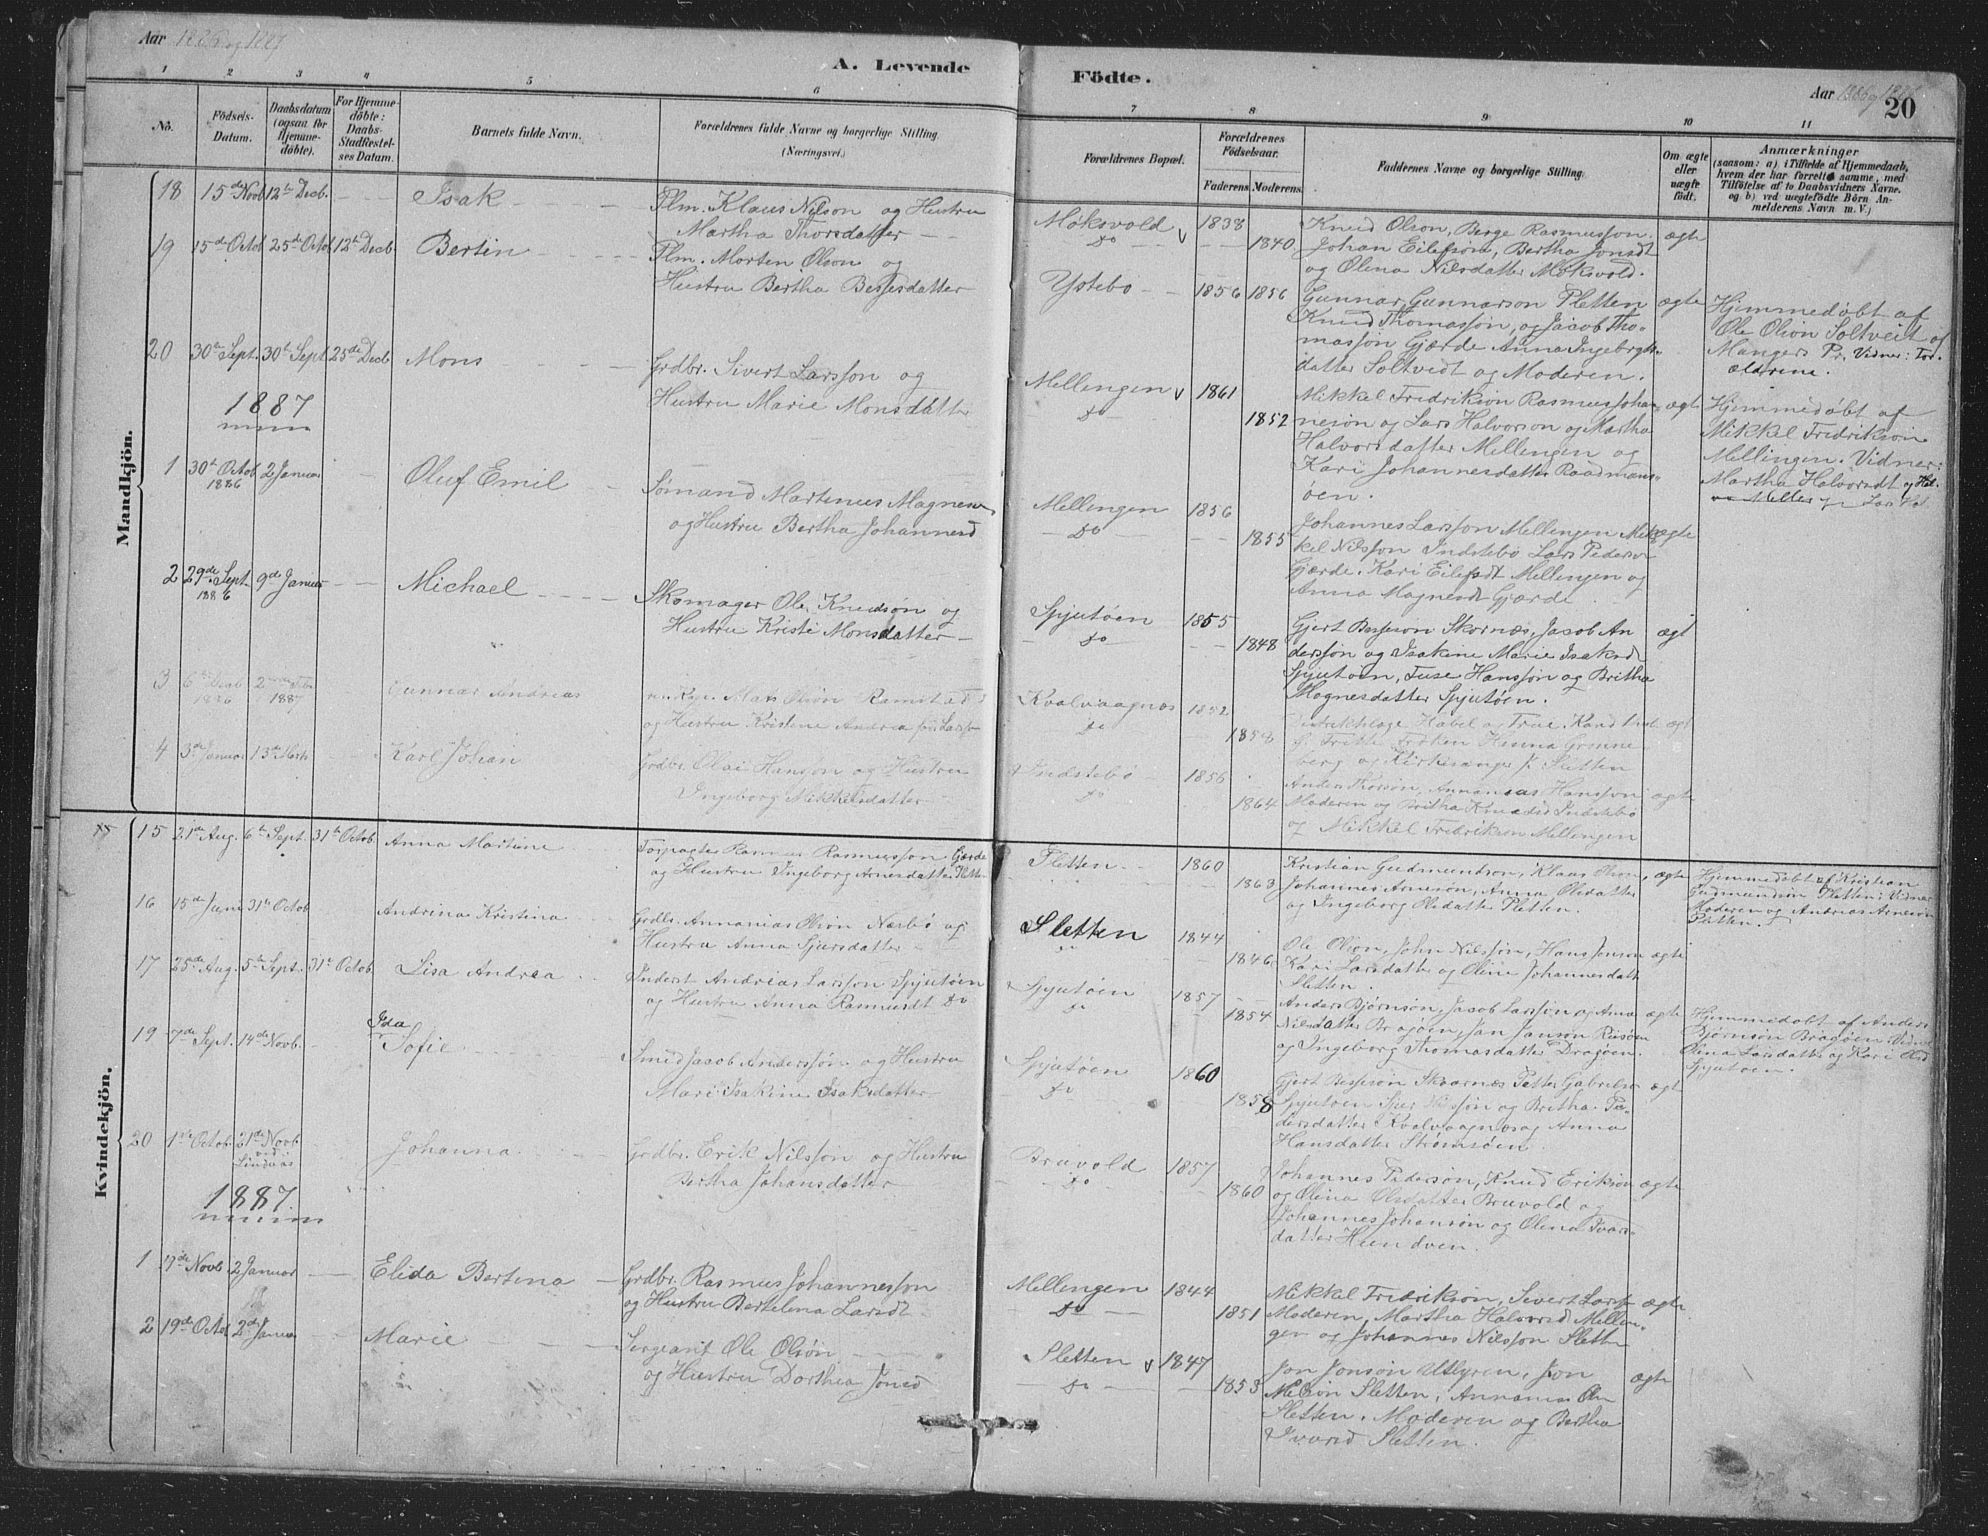 Aar 1886 og 1887
A. Levende
Födte.
Aar 1886 og
20
1 2 3 4 5 6 7 8 9 10 11
No.
Födsels-
Datum.
Daabsdatum
(ogsaa for
Hjemme-
döbte).
For Hjemme-
döbte:
Daabs-
Stadfæstel-
ses Datum.
Barnets fulde Navn.
Forældrenes fulde Navne og borgerlige Stilling.
(Næringsvei.)
Forældrenes Bopæl.
Forældrenes
Födselsaar.
Faderens. Moderens.
Faddernes Navne og borgerlige Stilling.
Om ægte
eller
uægte
født.
Anmærkninger
(saasom: a) i Tilfælde af Hjemmedaab,
hvem der har forrettet samme, med
Tilföielse af to Daabsvidners Navne.
og b) ved uægtefödte Börn An-
melderens Navn m. V.)
Mandkjön.
18 15de Novb 12te Decb. Isak
Plm. Klaus Nilson og Hustru
Martha Thorsdatter
Møksvold 1838
Do 1840
Knud Olson, Berge Rasmusson, ægte
Johan Eilefson, Bertha Jonsdt
og Olena Nilsdatter Møksvold.
19 15de Octob 25de Octob 12te Decb Bertin
Plm. Morten Olson og
Hustru Bertha Bessesdatter
Ystebo 1856 1856
Gunnar Gunnarson Sletten ægte
Knud Thomasson, og Jacob Tho-
masson Gjærde Anna Ingebrgts-
datter Soltvedt og Moderen.
Hjemmedøbt af
Ole Olson Soltveit af
Mangers Pr. Vidner: For-
ældrene.
20 30te Sept. 30te Sept 25de Decb Mons
Grdbr. Sivert Larsson og
Hustru Marie Monsdatter
Mellingen 1861
Do 1852
Mikkel Fredrikson Rasmus Johan- ægte
neson og Lars Halvorson og Martha
Halvorsdatter Mellingen og
Kari Johannesdatter Raadmans-
øen.
Hjemmedøbt af
Mikkel Fredrikson
Mellingen. Vidner:
Martha Halvorsdt og
1887
1 30te Octob 2 Januar Oluf Emil
1886
Sømand Martinus Magneson
og Hustru Bertha Johannesd
Mellingen 1856
Do 1855
Johannes Larsson Mellingen Mik- ægte
kel Nilsson Indstebø Lars Pederson
Gjærde. Kari Eilefsdt Mellingen og
Anna Magnesdt Gjærde
2 29de Sept 9de Januar Michael
1886
Skomager Ole Knudson og
Hustru Kristi Monsdatter
Spjutøen 1855
Do 1848
Gjert Besseson Skornæs, Jacob An ægt
dersson og Isakine Marie Isaksdt
Spjutøen, Tuse Hansson og Britha
Mognesdatter Spjutøen.
3 6te Decb 2den Febr Gunnar Andreas
1886 1887
Mats Olson Ramstad
og Hustru Kristine Andrea
Kvalvaagnæs 1852
Do 1858
Distriktslæge Habel og Frue. Kand ægt
Frøken Hanna Grønne
berg og Kirkesanger J. Sletten
4 3de Januar 13de Marts Karl Johan
Grdbr. Olai Hansson og Hustru
Ingeborg Mikkelsdatter
Indstebø 1856
Do 1864
Anders Thorson, Annanias Hansson ægte
Moderen og Britha Knudsdt Indstebø
og Mikkel Fredrikson Mellingen
Kvindekjön.
15 21de Aug. 6te Sept. 31te Octob Anna Martine
Rasmus Rasmusson Gjærde
og Hustru Ingeborg Arnesdatter Sletten
Sletten 1860
1863
Kristian Gudmundson, Klaas Olson, ægte
Johannes Arneson, Anna Olsdatter
og Ingeborg Olsdatter Sletten.
Hjemmedøbt af Kristian
Gudmundson Sletten: Vidner
Moderen og Andreas Arneson
Sletten.
16 15de Juni 31te Octob Andrina Kristina
Grdbr. Annanias Olson Næsbø og
Hustru Anna Sjursdatter
Sletten 1844
Do 1846
Ole Olson, John Nilsson, Hans Jonson ægte
Kari Larsdatter og Oline Johannesdatter
Sletten
17 25de Aug. 5te Sept. 31te Octob Lisa Andrea
Inderst Andreas Larsson Spjutøen
og Hustru Anna Rasmusdt Do
Spjutøen 1857
Do 1854
Anders Bjørnson, Jacob Larsson og Anna ægte
Nilsdatter Bragøen, Jan Janson Risøen
og Ingeborg Thomasdatter Dragøen.
Hjemmedøbt af Anders
Bjørnson Bragøen: Vidner
Olina Larsdatter og Kari Olsd
Spjutøen.
19 7de Sept. 14de Novb. Ida Sofie
Smed Jacob Andersson og Hustru
Mari Isakine Isaksdatter
Spjutøen 1860
Do 1858
Gjert Besseson Skvarnes Petter Gabrielson ægt
Spjutøen Sjur Nilsson og Britha Pe-
dersdatter Kvalvaagnes og Anna
Hansdatter Strømsøen.
20 1ste Octob. 21de Novb. Johanna
ved
Lindaas
Grdbr. Erik Nilsson og Hustru
Bertha Johansdatter
Bruvold 1857
Do 1860
Johannes Pederson, Knud Erikson ægte
og Olina Olsdatter Bruvold og
Johannes Johanson og Olena Ivars-
datter Hundven.
1887.
1 17de Novb 2 Januar Elida Bertina
Grdbr. Rasmus Johannesson
og Hustru Bertelena Larsdt
Mellingen 1844
Do 1851
Mikkel Fredrikson, Sivert Larss ægte
Moderen, Martha Halvorsd Mellin-
gen og Johannes Nilsson Sletten
2 19de Octob 2de Januar Marie
Sergeant Ole Olson
og Hustru Dorthea Jonsd
Sletten 1847
Do 1853
Jon Jonson Utlyren, Jon ægte
Nilson Sletten, Annanias
Sletten. Moderen og Bertha
Ivarsd Sletten.